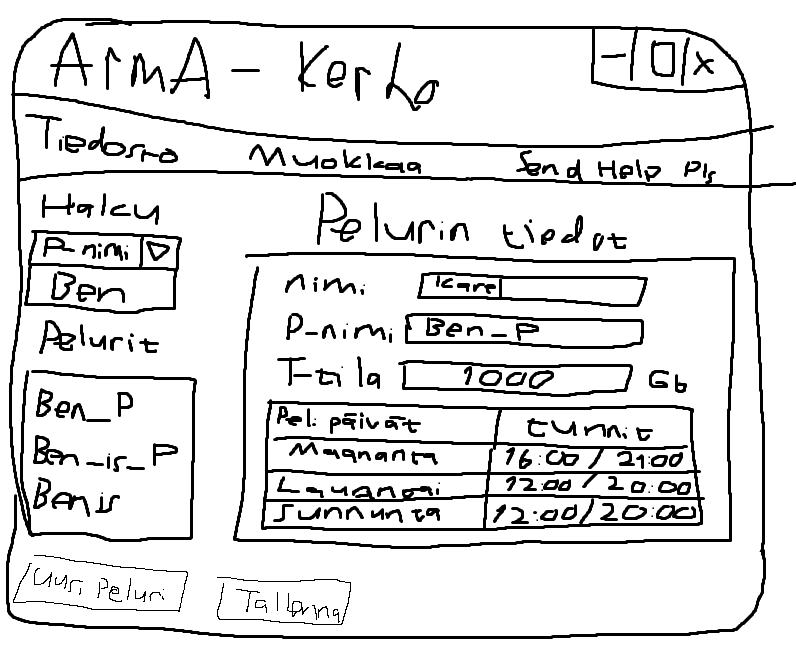 ArmA - Kerho
- O x
Tiedosto Muokkaa Send Help Pls
Haku
P-nimi
Ben
Pelurit
Ben_P
Ben_is_P
Benis
Pelurin tiedot
nimi Kare
P-nimi Ben_P
T-tila 1000 Gb
Peli päivät tunnit
Maanantai 16:00 / 21:00
Lauantai 12:00 / 20:00
Sunnunta 12:00/20:00
Uusi Peluri Tallenna